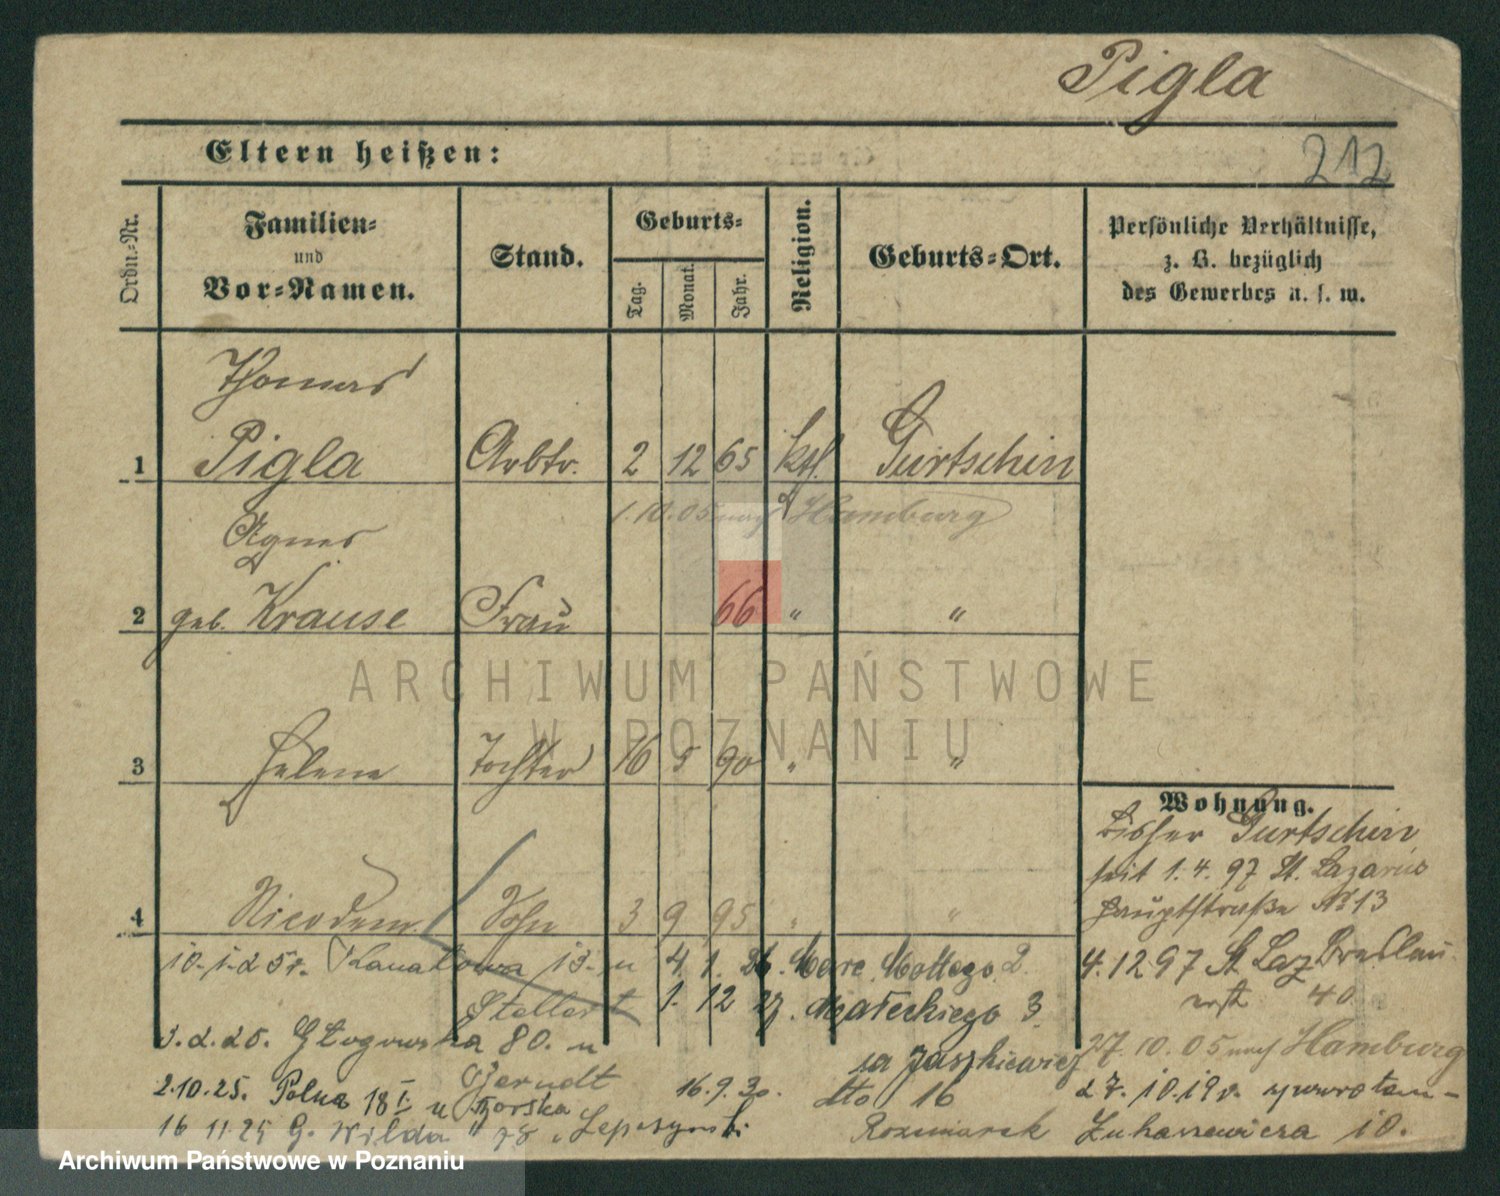 Pigla
Eltern heißen:
212
Ordn.-Nr.
Familien-
und
Vor-Namen.
Stand.
Geburts-
Tag.
Monat.
Jahr.
Religion.
Geburts-Ort.
Persönliche Verhältnisse,
z. B. bezüglich
des Gewerbes u. s. w.
Thomas
1 Pigla Arbtr. 2 12 65 ktl. Gurtschin
1.10.05 nach Hamburg
Agnes
2 geb. Krause Frau 66 " "
ARCHIWUM PAŃSTWOWE
W POZNANIU
3 Helene Tochter 16 5 90 " "
Wohnung.
Bisher Gurtschin
seit 1.4.97 St. Lazarus
Hauptstraße No 13
4 Nicodem Sohn 3 9 95 " "
4.12 97 St Laz Breslau
erstr 40
10.1.25 r. Kanałowa 13. u
Stellert
4 1. 26. Marc. Mottego 2.
1. 12 27. Małeckiego 3.
3.2.25. Głogowska 80. u
Gerndt
u Jaszkiewicz
27.10.05 nach Hamburg
2.10.25. Polna 18 I u Górska
16.9.30.
dto 16
27.10.19 r. zpowrotem-
16 11.25 G. Wilda 78
Rozmarek
Łukaszewicza 10.
Archiwum Państwowe w Poznaniu